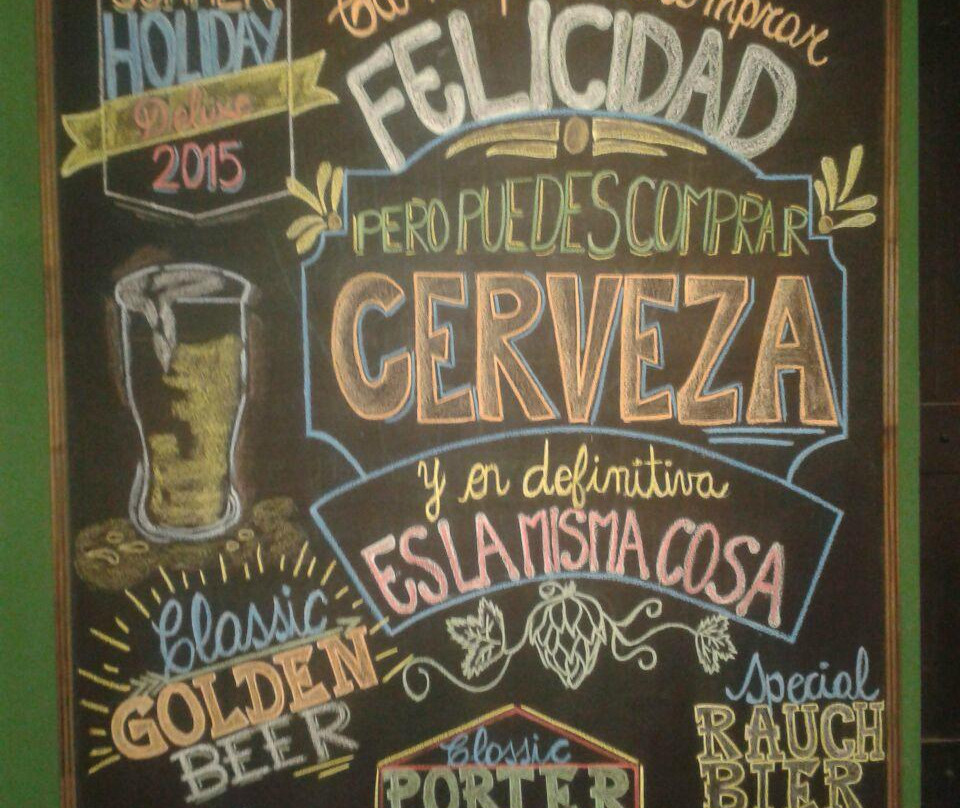 SUMMER
HOLIDAY
Deluxe
2015
comprar
FELICIDAD
PERO PUEDES COMPRAR
CERVEZA
y en definitiva
ES LA MISMA COSA
Classic
GOLDEN
BEER
Classic
PORTER
Special
RAUCH
BIER